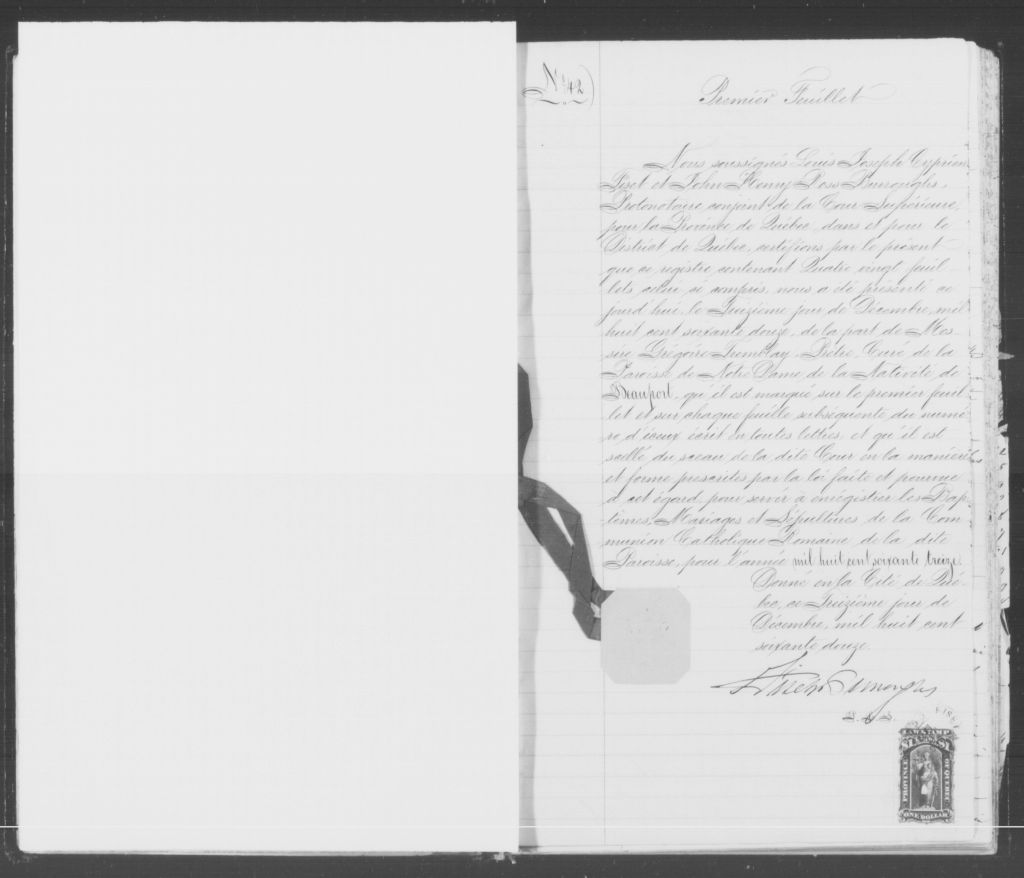 No 42
Premier Feuillet
Nous soussignés Louis Joseph Cyprien
Fiset et John Henry Ross Burroughs,
Protonotaire conjoint de la Cour Supérieure,
pour la Province de Québec, dans et pour le
District de Québec, certifions par le présent
que ce registre contenant Quatre vingt feuil-
lets, celui ci compris, nous a été présenté ce
jourd'hui, le Treizième jour de Décembre, mil
huit cent soixante douze, de la part de Mes-
sire Grégoire Tremblay Prêtre, Curé de la
Paroisse de Notre Dame, de la Nativité de
Beauport, qu'il est marqué sur le premier feuil-
let et sur chaque feuille subséquente du numé-
ro d'iceux écrit en toutes lettres, et qu'il est
scellé du sceau de la dite Cour en la manière
et forme prescrites par la loi faite et pourvue
à cet égard, pour servir à enregistrer les Bap-
têmes, Mariages et Sépultures de la Com-
munion Catholique Romaine de la dite
Paroisse, pour l'année mil huit cent soixante treize.
Donné en la Cité de Qué-
bec, ce Treizième jour de
Décembre, mil huit cent
soixante douze.
Fiset Burroughs
P. C. S.
LAW STAMP
$1 $1
PROVINCE
OF QUEBEC
ONE DOLLAR